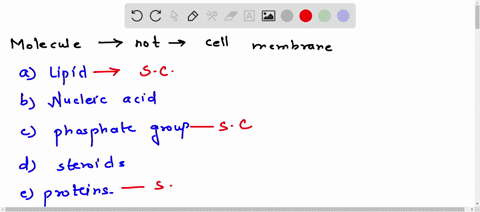 Molecule → not → cell membrane
a) Lipid → S.C.
b) Nucleic acid
c) phosphate group — S.C
d) steroids
e) proteins — S.